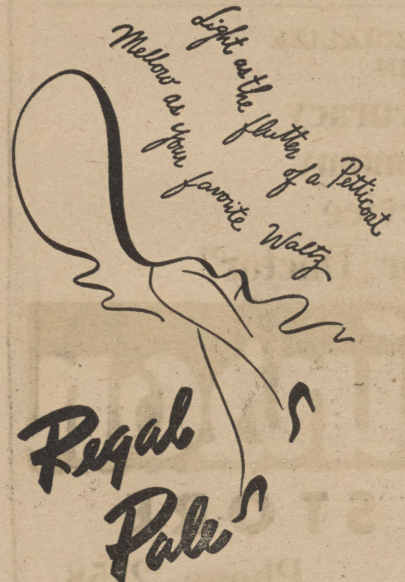 Light as the flutter of a Petticoat
Mellow as your favorite Waltz
Regal
Pale